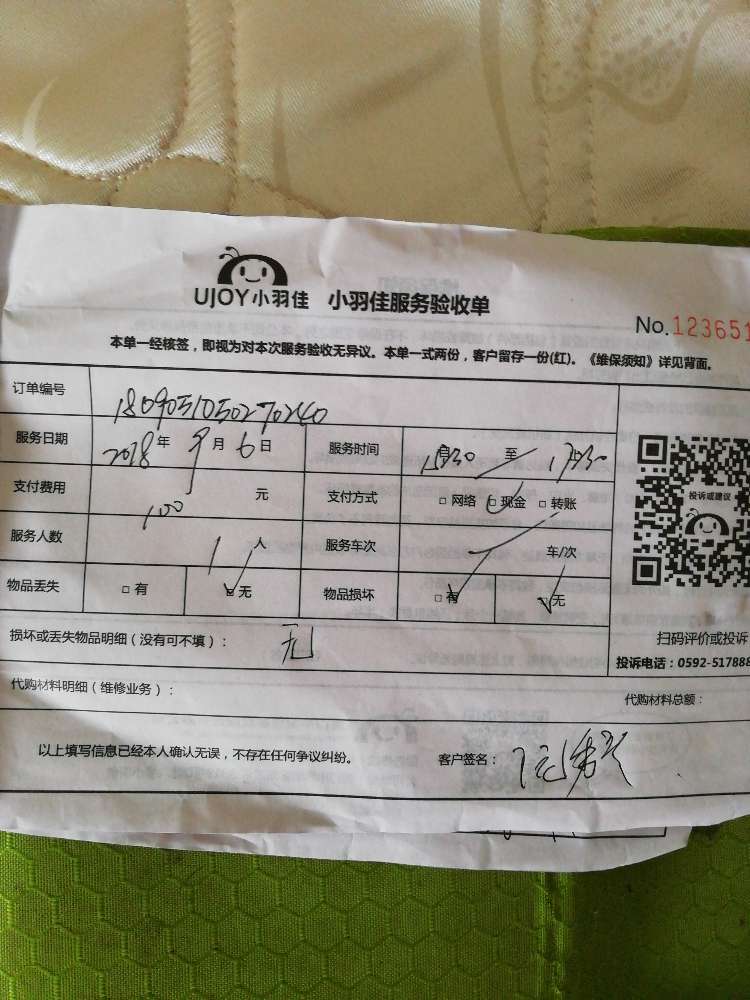 UJOY小羽佳 小羽佳服务验收单
No.123651
本单一经核签，即视为对本次服务验收无异议。本单一式两份，客户留存一份(红)。《维保须知》详见背面。
订单编号 1809051050270240
服务日期 2018年9月6日 服务时间 至 17:30
支付费用 100 元 支付方式 □网络 □现金 □转账
服务人数 1人 服务车次 车/次
物品丢失 □有 □无 物品损坏 □有 □无
损坏或丢失物品明细（没有可不填）： 无
代购材料明细（维修业务）：
代购材料总额：
投诉或建议
扫码评价或投诉
投诉电话：0592-517888
以上填写信息已经本人确认无误，不存在任何争议纠纷。 客户签名：